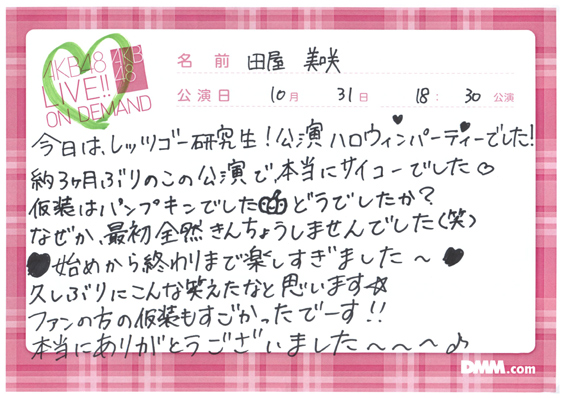 AKB48
LIVE!!
ON DEMAND
AKB
48
名前 田屋 美咲
公演日 10月 31日 18:30公演
今日は、レッツゴー研究生！公演ハロウィンパーティーでした！
約3ヶ月ぶりのこの公演で、本当にサイコーでした♡
仮装はパンプキンでした🎃どうでしたか？
なぜか、最初全然きんちょうしませんでした（笑）
♥始めから終わりまで楽しすぎました〜♥
久しぶりにこんな笑えたなと思います☆
ファンの方の仮装もすごかったでーす！！
本当にありがとうございました〜〜〜♪
DMM.com